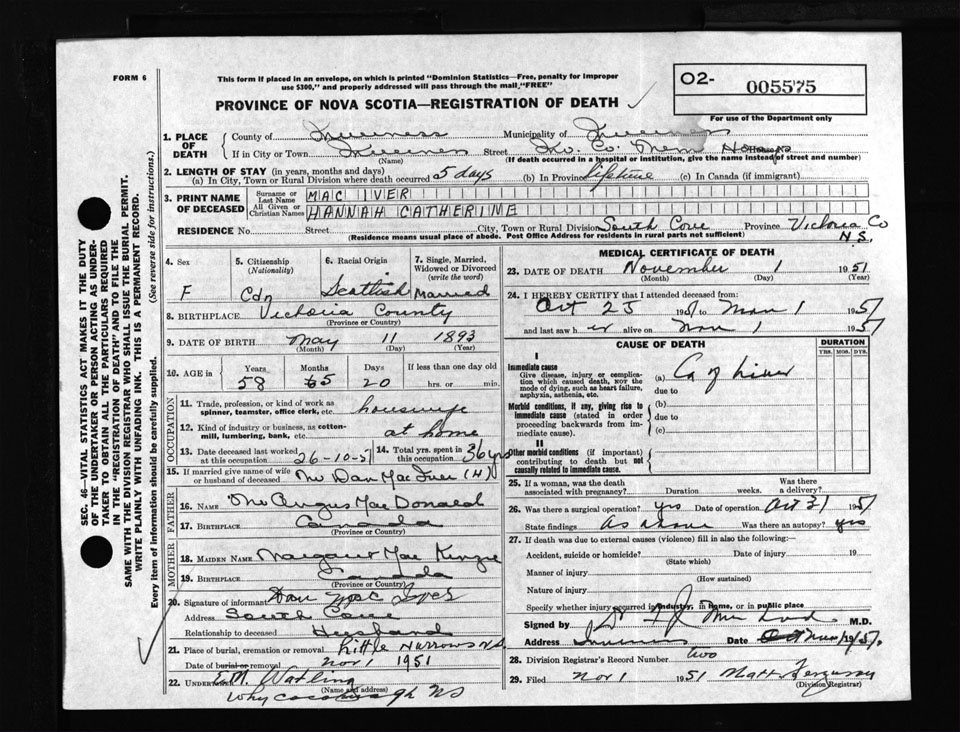 FORM 6
This form if placed in an envelope, on which is printed "Dominion Statistics—Free, penalty for improper
use $300," and properly addressed will pass through the mail "FREE"
PROVINCE OF NOVA SCOTIA—REGISTRATION OF DEATH
O2- 005575
For use of the Department only
1. PLACE OF DEATH
County of Inverness Municipality of Inverness
If in City or Town Inverness Street Inv. Co. Mem Hospital
(Name) (If death occurred in a hospital or institution, give the name instead of street and number)
2. LENGTH OF STAY (in years, months and days)
(a) In City, Town or Rural Division where death occurred 5 days (b) In Province lifetime (c) In Canada (if immigrant)
3. PRINT NAME OF DECEASED
Surname or Last Name MAC IVER
All Given or Christian Names HANNAH CATHERINE
RESIDENCE No. Street City, Town or Rural Division South Cove Province Victoria Co
N S.
(Residence means usual place of abode. Post Office Address for residents in rural parts not sufficient)
4. Sex
F
5. Citizenship
(Nationality)
Cdn
6. Racial Origin
Scottish
7. Single, Married,
Widowed or Divorced
(write the word)
Married
8. BIRTHPLACE Victoria County
(Province or Country)
9. DATE OF BIRTH May 11 1893
(Month) (Day) (Year)
10. AGE in
Years Months Days If less than one day old
58 5 20 hrs. or min.
OCCUPATION
11. Trade, profession, or kind of work as
spinner, teamster, office clerk, etc. housewife
12. Kind of industry or business, as cotton-
mill, lumbering, bank, etc. at home
13. Date deceased last worked
at this occupation 26-10-51
14. Total yrs. spent in
this occupation 36 yrs
15. If married give name of wife
or husband of deceased Mr Dan MacIver (H)
FATHER
16. NAME Mr Angus MacDonald
17. BIRTHPLACE Canada
(Province or Country)
MOTHER
18. MAIDEN NAME Margaret MacKenzie
19. BIRTHPLACE Canada
(Province or Country)
20. Signature of informant Dan MacIver
Address South Cove
Relationship to deceased Husband
21. Place of burial, cremation or removal Little Narrows N.S.
Date of burial or removal Nov 1 1951
22. UNDERTAKER E.M. Watling
(Name and address)
Whycocomagh NS
MEDICAL CERTIFICATE OF DEATH
23. DATE OF DEATH November 1 1951
(Month) (Day) (Year)
24. I HEREBY CERTIFY that I attended deceased from:
Oct 25 1951 to Nov 1 1951
and last saw her alive on Nov 1 1951
CAUSE OF DEATH
DURATION
YRS. MOS. DYS.
I
Immediate cause
Give disease, injury or compli-
cation which caused death, NOT the
mode of dying, such as heart failure,
asphyxia, asthenia, etc.
(a) Ca of Liver
due to
Morbid conditions, if any, giving rise to
immediate cause (stated in order
proceeding backwards from im-
mediate cause).
(b)
due to
(c)
II
Other morbid conditions (if important)
contributing to death but not
causally related to immediate cause.
25. If a woman, was the death
associated with pregnancy? Duration weeks. Was there
a delivery?
26. Was there a surgical operation? yes Date of operation Oct 31 1951
State findings As above Was there an autopsy? yes
27. If death was due to external causes (violence) fill in also the following:—
Accident, suicide or homicide? Date of injury 19
(State which)
Manner of injury
(How sustained)
Nature of injury
Specify whether injury occurred in industry, in home, or in public place
Signed by M.D.
Address Inverness Date
28. Division Registrar's Record Number two
29. Filed Nov 1 1951 Matt Ferguson
(Division Registrar)
SEC. 46—VITAL STATISTICS ACT MAKES IT THE DUTY
OF THE UNDERTAKER OR PERSON ACTING AS UNDER-
TAKER TO OBTAIN ALL THE PARTICULARS REQUIRED
IN THE "REGISTRATION OF DEATH" AND TO FILE THE
SAME WITH THE DIVISION REGISTRAR WHO SHALL ISSUE THE BURIAL PERMIT.
WRITE PLAINLY WITH UNFADING INK. THIS IS A PERMANENT RECORD.
Every item of information should be carefully supplied. (See reverse side for instructions.)